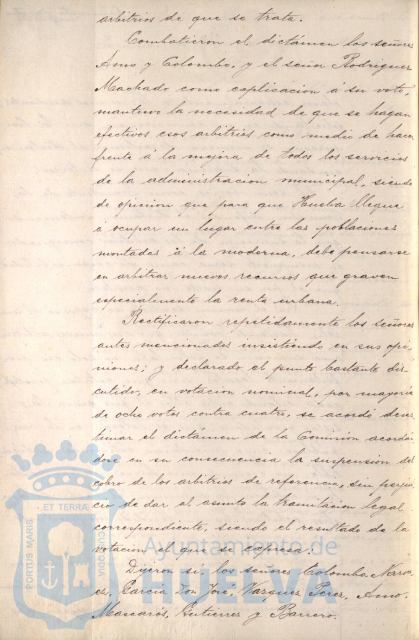 arbitrios de que se trata.
Combatieron el dictámen los señores
Amo y Colombo, y el señor Rodriguez
Machado como esplicacion á su voto
mantuvo la necesidad de que se hagan
efectivos esos arbitrios como medio de hacer
frente á la mejora de todos los servicios
de la administracion municipal, siendo
de opinion que para que Huelva llegue
á ocupar un lugar entre las poblaciones
montadas á la moderna, debe pensarse
en arbitrar nuevos recursos que graven
especialmente la renta urbana.
Rectificaron repetidamente los señores
antes mencionados insistiendo en sus opi
niones; y declarado el punto bastante dis
cutido, en votacion nominal, por mayoria
de ocho votos contra cuatro, se acordó deses
timar el dictámen de la Comision acordán
dose en su consecuencia la suspension del
cobro de los arbitrios de referencia, sin perjui
cio de dar al asunto la tramitacion legal
correspondiente, siendo el resultado de la
votacion el que se espresa:
Dijeron si, los señores Colombo,
Garcia Don José, Vazquez Perez, Amo,
Mascarós, Gutierrez y Barrero.
PORTUS MARIS ET TERRAE CUSTODIA
Ayuntamiento de
HUELVA